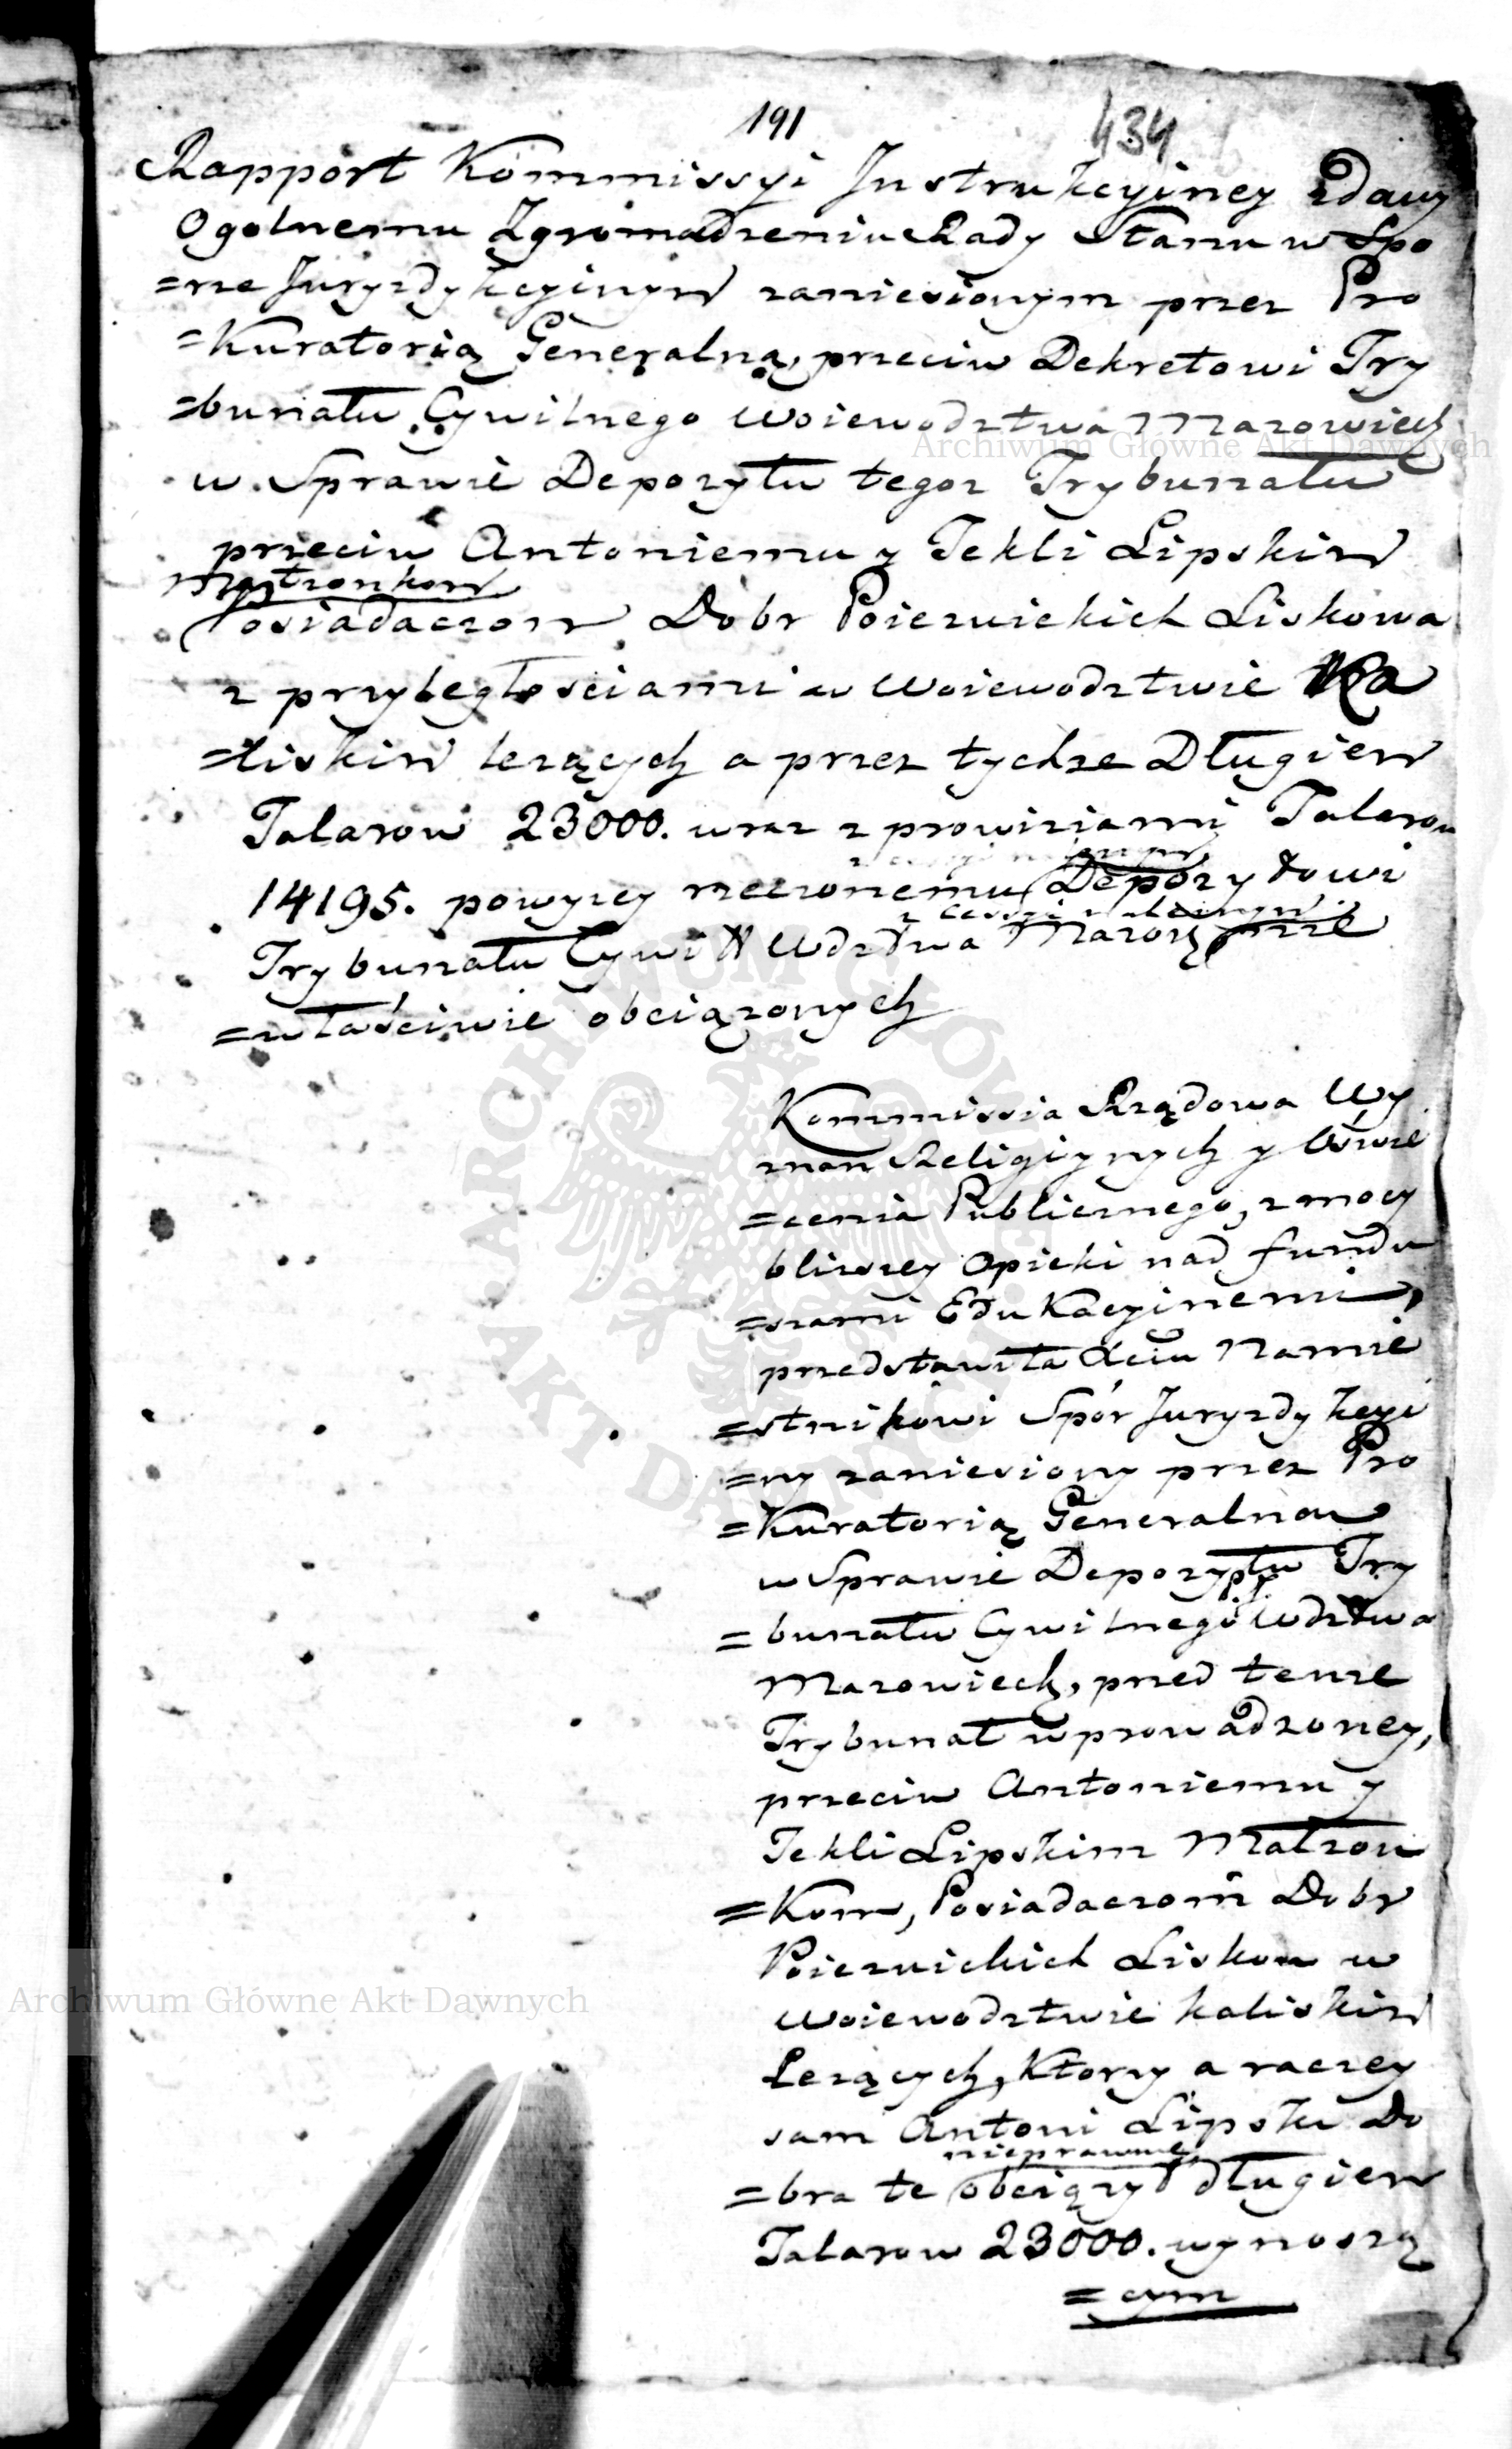 191
434
Rapport Kommissyi Instrukcyiney zdany
Ogolnemu Zgromadzeniu Rady Stanu w Spo
=rze Juryzdykcyinym zaniesionym przez Pro
=Kuratorią Generalną, przeciw Dekretowi Try
=bunału Cywilnego Woiewodztwa Mazowieck:
w Sprawie Depozytu tegoz Trybunału
przeciw Antoniemu y Tekli Lipskim
Małzonkom
Posiadaczom Dobr Poiezuickich Liskowa
z przyległosciami w Woiewodztwie Ka
=liskim lezących a przez tychze Długiem
Talarow 23000. wraz z prowiziami Talarow
14195. powyzey rzeczonemu Depozytowi
z cessyi należnym
Trybunału Cywil Wdztwa Mazow: nie
=właściwie obciązonych
Kommissia Rządowa Wy
znan Religiynych y Oswie
=cenia Publicznego, z mocy
blizszey Opieki nad fundu
=szami Edukacyinemi,
przedstawiła Xciu Namie
=stnikowi Spór Juryzdykcyi
=ny zaniesiony przez Pro
=Kuratorią Generalnou
w Sprawie Depozytu Try
=bunału Cywilnego Wdztwa
Mazowieck, przed tenze
Trybunał wprowadzoney,
przeciw Antoniemu y
Tekli Lipskim Małzon
=Kom, Posiadaczom Dobr
Poiezuickich Liskow w
Woiewodztwie kaliskim
Lezących, Ktorzy a raczey
sam Antoni Lipski Do
nieprawnie
=bra te obciązył długiem
Talarow 23000. wynoszą
=cym
Archiwum Główne Akt Dawnych
Archiwum Główne Akt Dawnych
ARCHIWUM GŁÓWNE AKT DAWNYCH